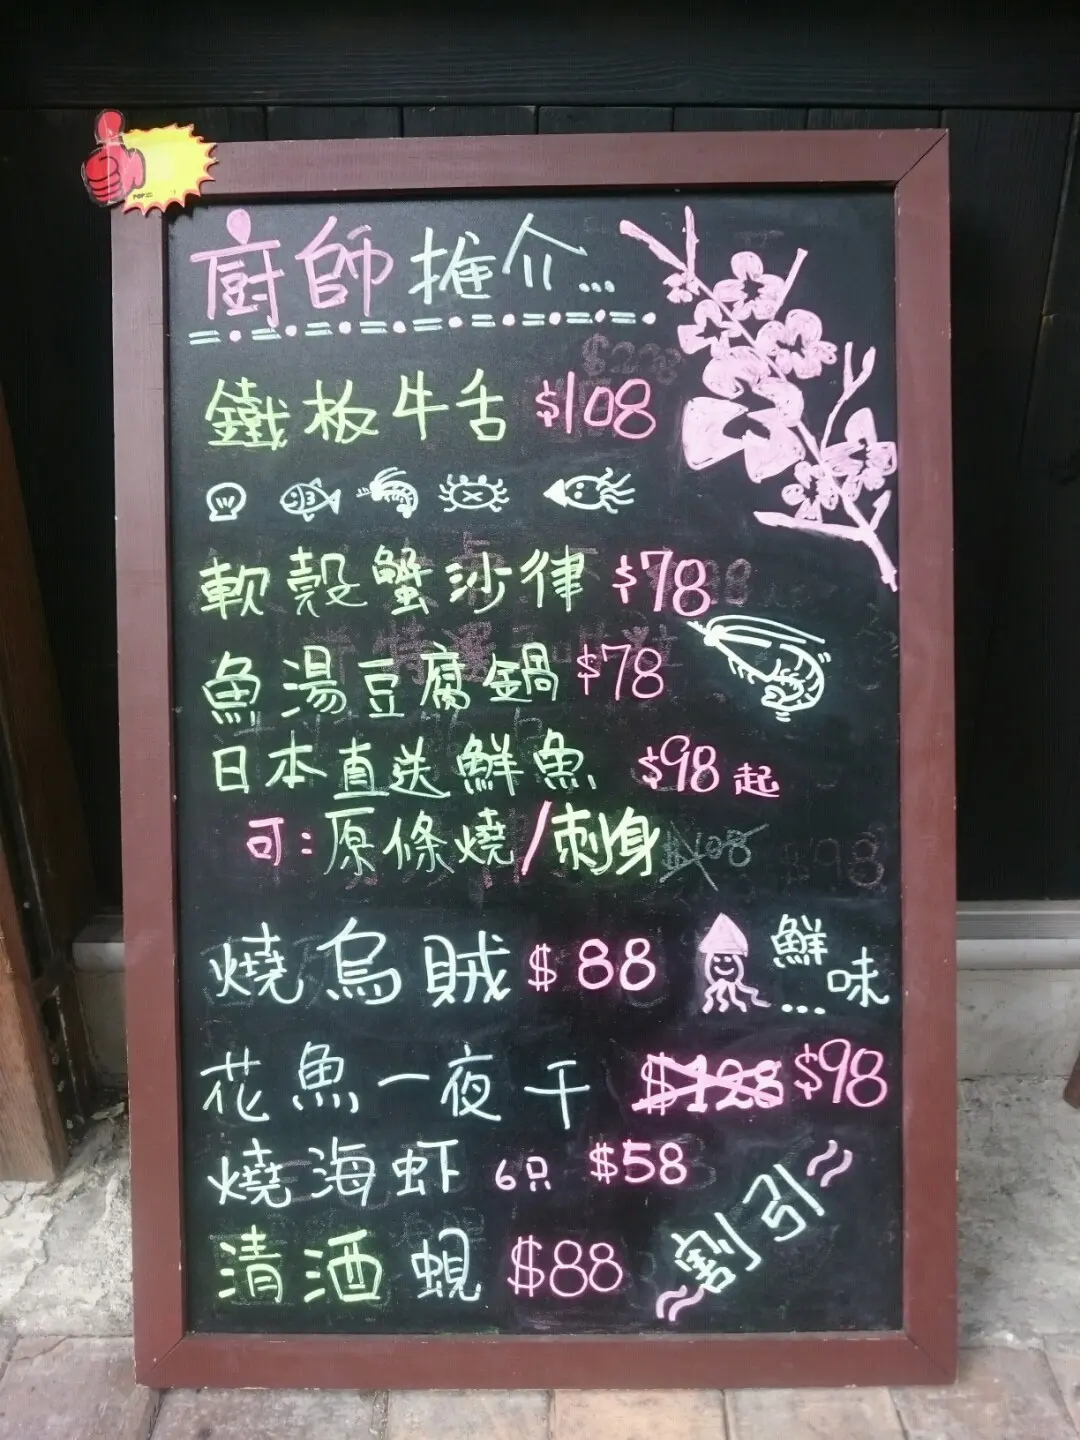 廚師推介...
鐵板牛舌 $108
軟殼蟹沙律 $78
魚湯豆腐鍋 $78
日本直送鮮魚 $98起
可:原條燒/刺身 $108
燒烏賊 $88 鮮味...
花魚一夜干 $128 $98
燒海虾 6只 $58
清酒蜆 $88
割引